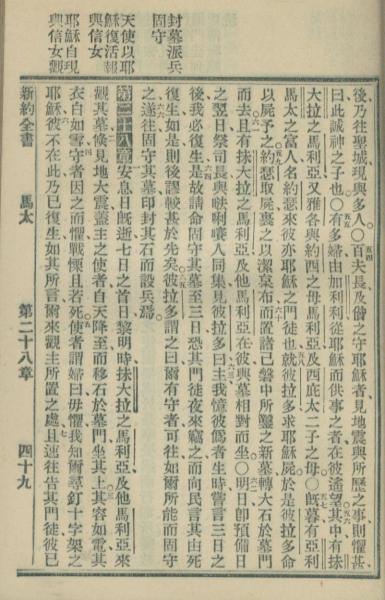 封墓派兵
固守
天使以耶
穌復活報
與信女
耶穌自現
與信女觀
後乃往聖城現與多人〇百夫長及偕之守耶穌者見地震與所歷之事則懼甚
曰此誠神之子也〇有多婦由加利利從耶穌而供事之者在彼遙望其中有抹
大拉之馬利亞又雅各與約西之母馬利亞及西庇太二子之母〇旣暮有亞利
馬太之富人名約瑟來彼亦耶穌之門徒也就彼拉多求耶穌屍於是彼拉多命
以屍予之約瑟取屍裹之以潔枲布而置諸己磐中所鑿之新墓轉大石於墓門
而去且有抹大拉之馬利亞及他馬利亞在彼與墓相對而坐〇明日卽預備日
之翌日祭司長與𠵽唎㘔人同集見彼拉多曰主我憶彼僞者生時嘗言三日之
後我必復生是故請命固守其墓至三日恐其門徒夜來竊之而向民言其由死
復生如是則後謬較甚於先矣彼拉多謂之曰爾有守者可往如爾所能而固守
之遂往固守其墓印封其石而設兵焉
第二十八章安息日旣逝七日之首日黎明時抹大拉之馬利亞及他馬利亞來
觀其墓倏見地大震蓋主之使者自天降至而移石於墓門坐其上其容如電其
衣白如雪守者因之而懼戰慄且若死使者謂婦曰毋懼我知爾尋釘十字架之
耶穌彼不在此乃已復生如其所言爾來觀主所置之處且速往告其門徒彼已
新約全書 馬太 第二十八章 四十九